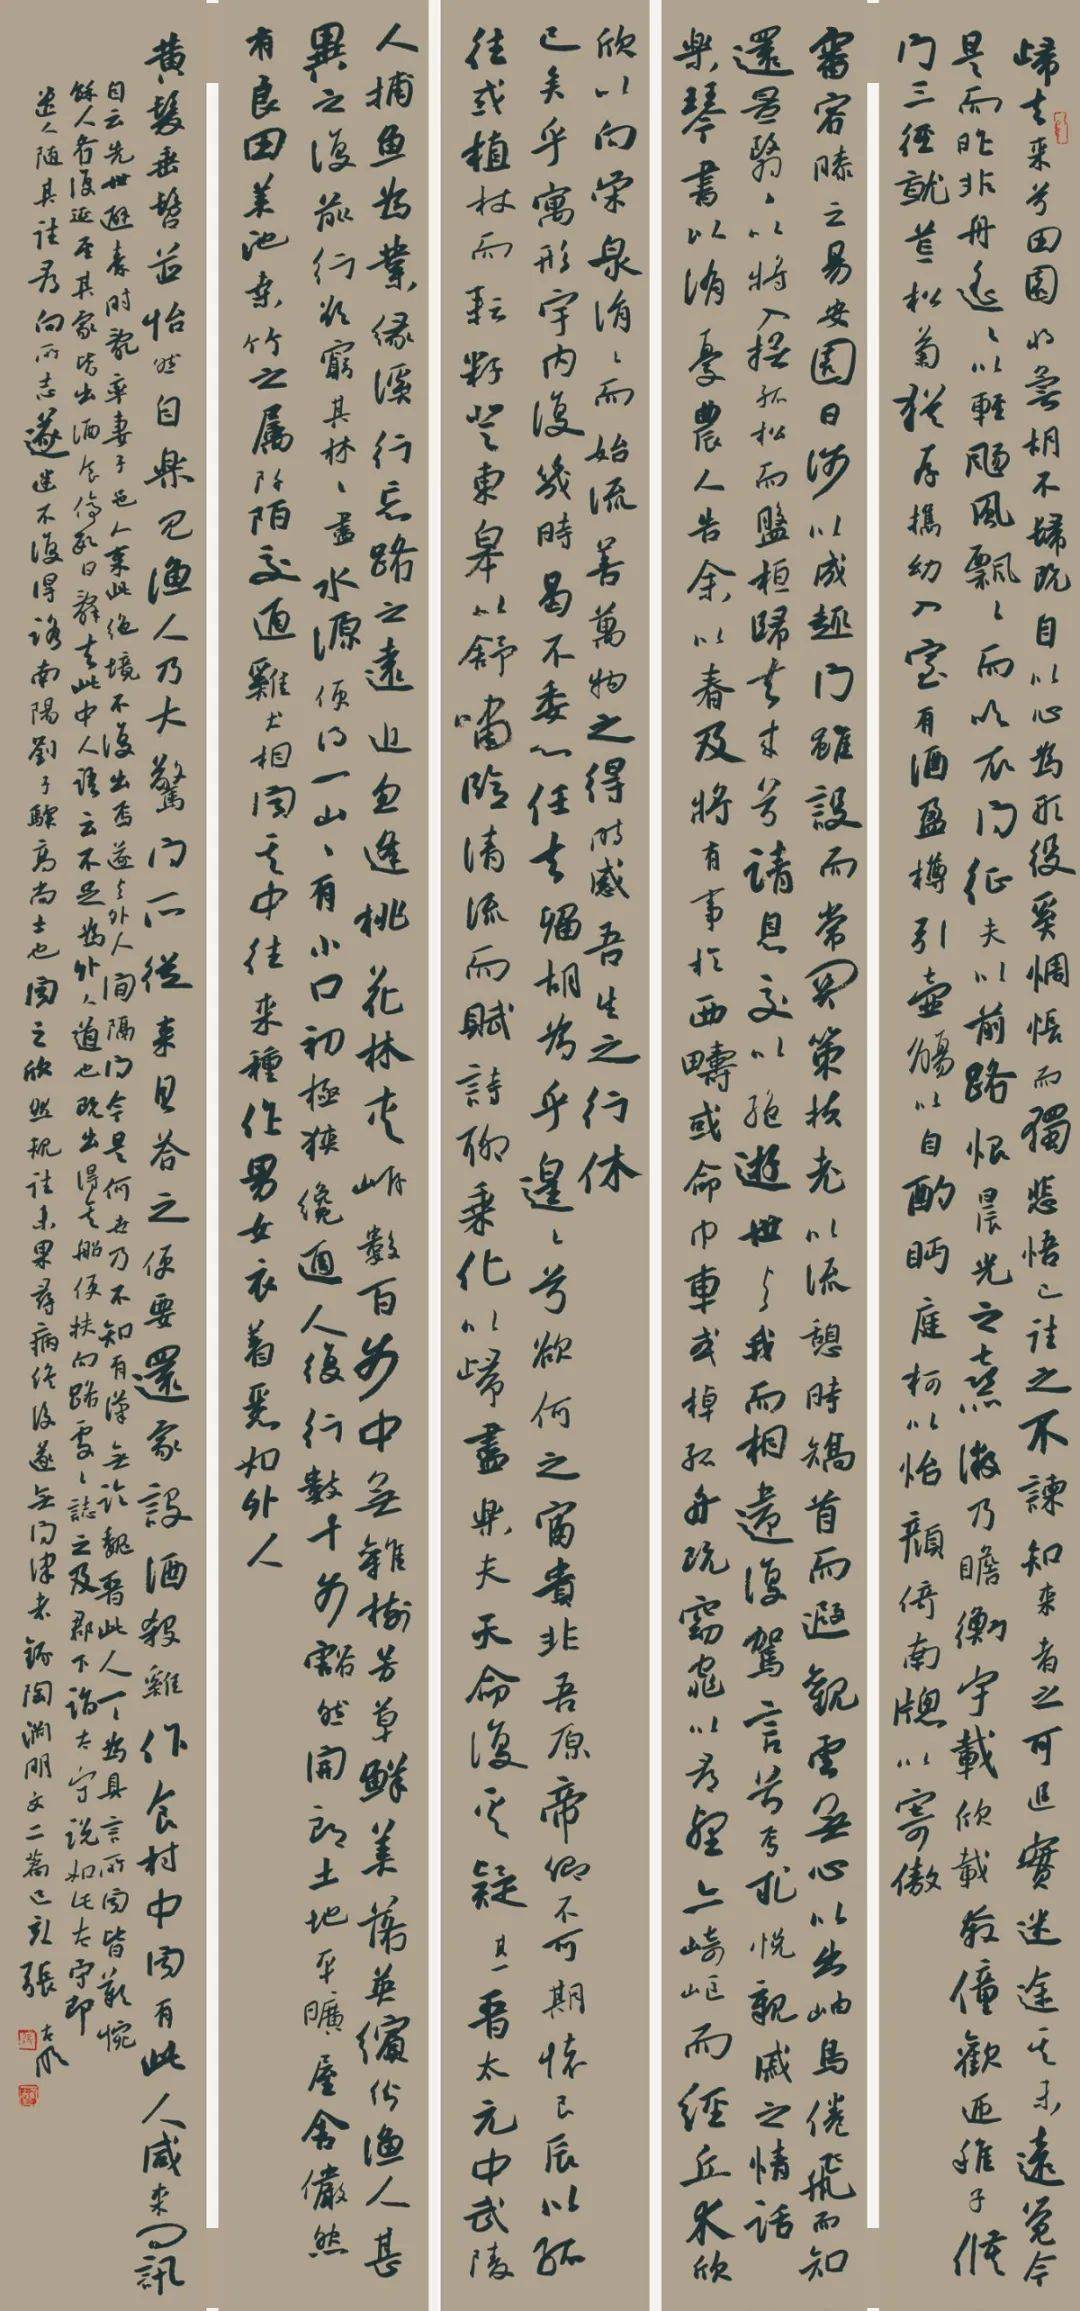 歸去来兮田園将蕪胡不歸既自以心為形役奚惆悵而獨悲悟已往之不諫知来者之可追實迷途其未遠覺今
是而昨非舟遙ヽ以輕颺風飄ヽ而吹衣問征夫以前路恨晨光之熹微乃瞻衡宇載欣載奔僮歡迎稚子候
門三徑就荒松菊猶存攜幼入室有酒盈樽引壺觴以自酌眄庭柯以怡顏倚南牕以寄傲
審容膝之易安園日涉以成趣門雖設而常関策扶老以流憩時矯首而遐觀雲無心以出岫鳥倦飛而知
還景翳ヽ以將入撫孤松而盤桓歸去来兮請息交以絕遊世與我而相遺復駕言兮焉求悅親戚之情話
樂琴書以消憂農人告余以春及將有事於西疇或命巾車或棹孤舟既窈窕以尋壑亦崎嶇而經丘木欣
欣以向榮泉涓ヽ而始流善萬物之得時感吾生之行休
已矣乎寓形宇內復幾時曷不委心任去留胡為乎遑ヽ兮欲何之富貴非吾原帝鄉不可期懷良辰以孤
往或植杖而耘耔登東皋以舒嘯臨清流而賦詩聊乘化以歸盡樂夫天命復奚疑其一晉太元中武陵
人捕魚為業緣溪行忘路之遠近忽逢桃花林夾岸數百步中無雜樹芳草鮮美落英繽紛漁人甚
異之復前行欲窮其林ヽ盡水源便得一山ヽ有小口初極狹纔通人復行數十步豁然開朗土地平曠屋舍儼然
有良田美池桑竹之屬阡陌交通雞犬相聞其中往来種作男女衣着悉如外人
黄髮垂髫並怡然自樂見漁人乃大驚問所從来具答之便要還家設酒殺雞作食村中聞有此人咸来問訊
自云先世避秦時亂率妻子邑人来此絕境不復出焉遂與外人間隔問今是何世乃不知有漢無論魏晉此人一ヽ為具言所聞皆歎惋
餘人各復延至其家皆出酒食停數日辭去此中人語云不足為外人道也既出得其船便扶向路處ヽ誌之及郡下詣太守説如此太守即
遣人隨其往尋向所志遂迷不復得路南陽劉子驥高尚士也聞之欣然規往未果尋病終後遂無問津者錄陶淵明文二篇己亥張